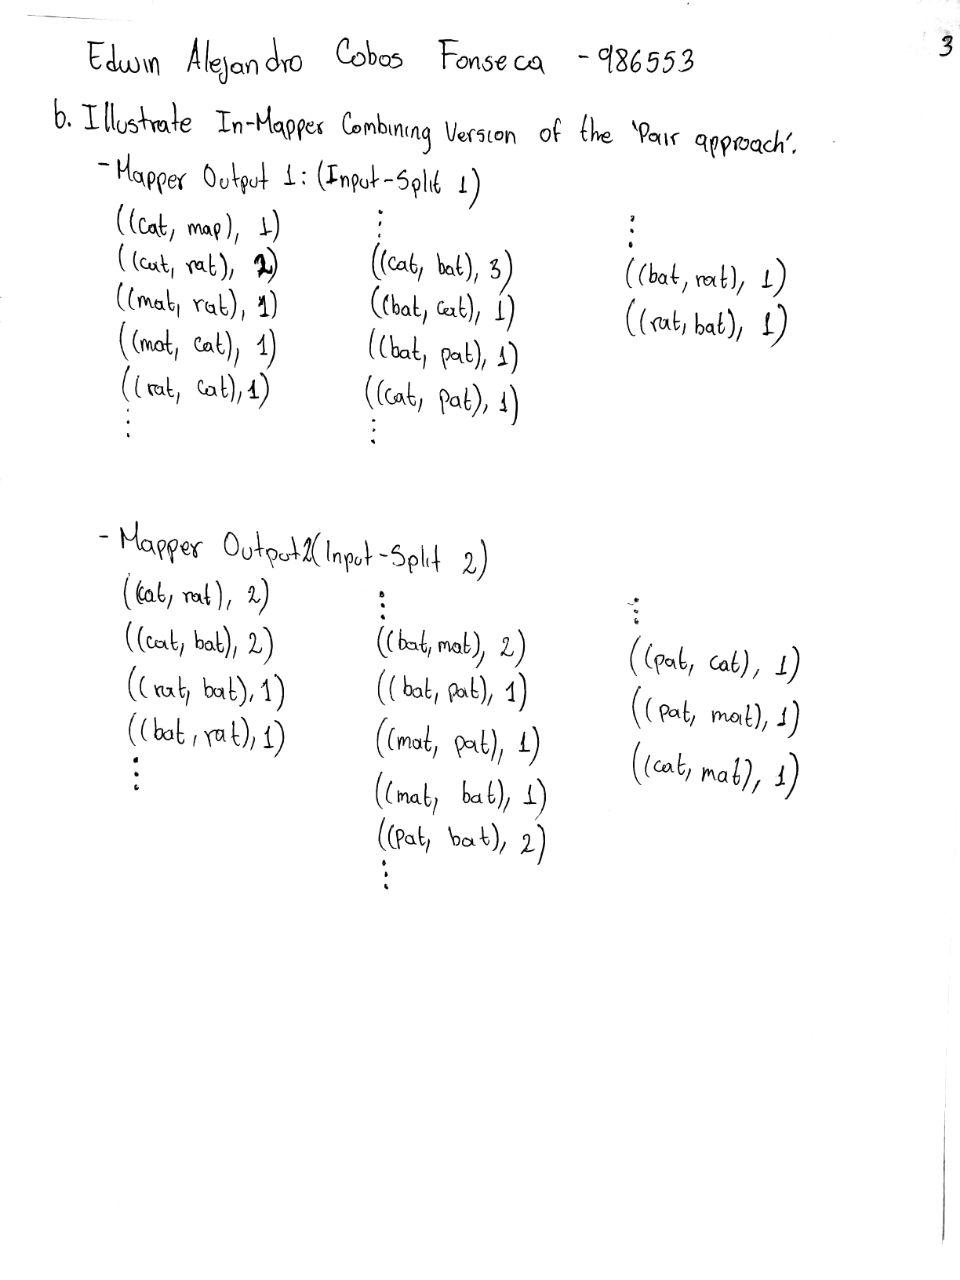 3
Edwin Alejandro Cobos Fonseca - 986553
b. Illustrate In-Mapper Combining Version of the 'Pair approach'.
- Mapper Output 1: (Input-Split 1)
((cat, map), 1)
((cat, rat), 2)
((mat, rat), 1)
((mat, cat), 1)
((rat, cat), 1)
⋮
⋮
((cat, bat), 3)
((bat, cat), 1)
((bat, pat), 1)
((cat, pat), 1)
⋮
⋮
((bat, rat), 1)
((rat, bat), 1)
- Mapper Output2(Input-Split 2)
((cat, rat), 2)
((cat, bat), 2)
((rat, bat), 1)
((bat, rat), 1)
⋮
⋮
((bat, mat), 2)
((bat, pat), 1)
((mat, pat), 1)
((mat, bat), 1)
((Pat, bat), 2)
⋮
⋮
((pat, cat), 1)
((pat, mat), 1)
((cat, mat), 1)